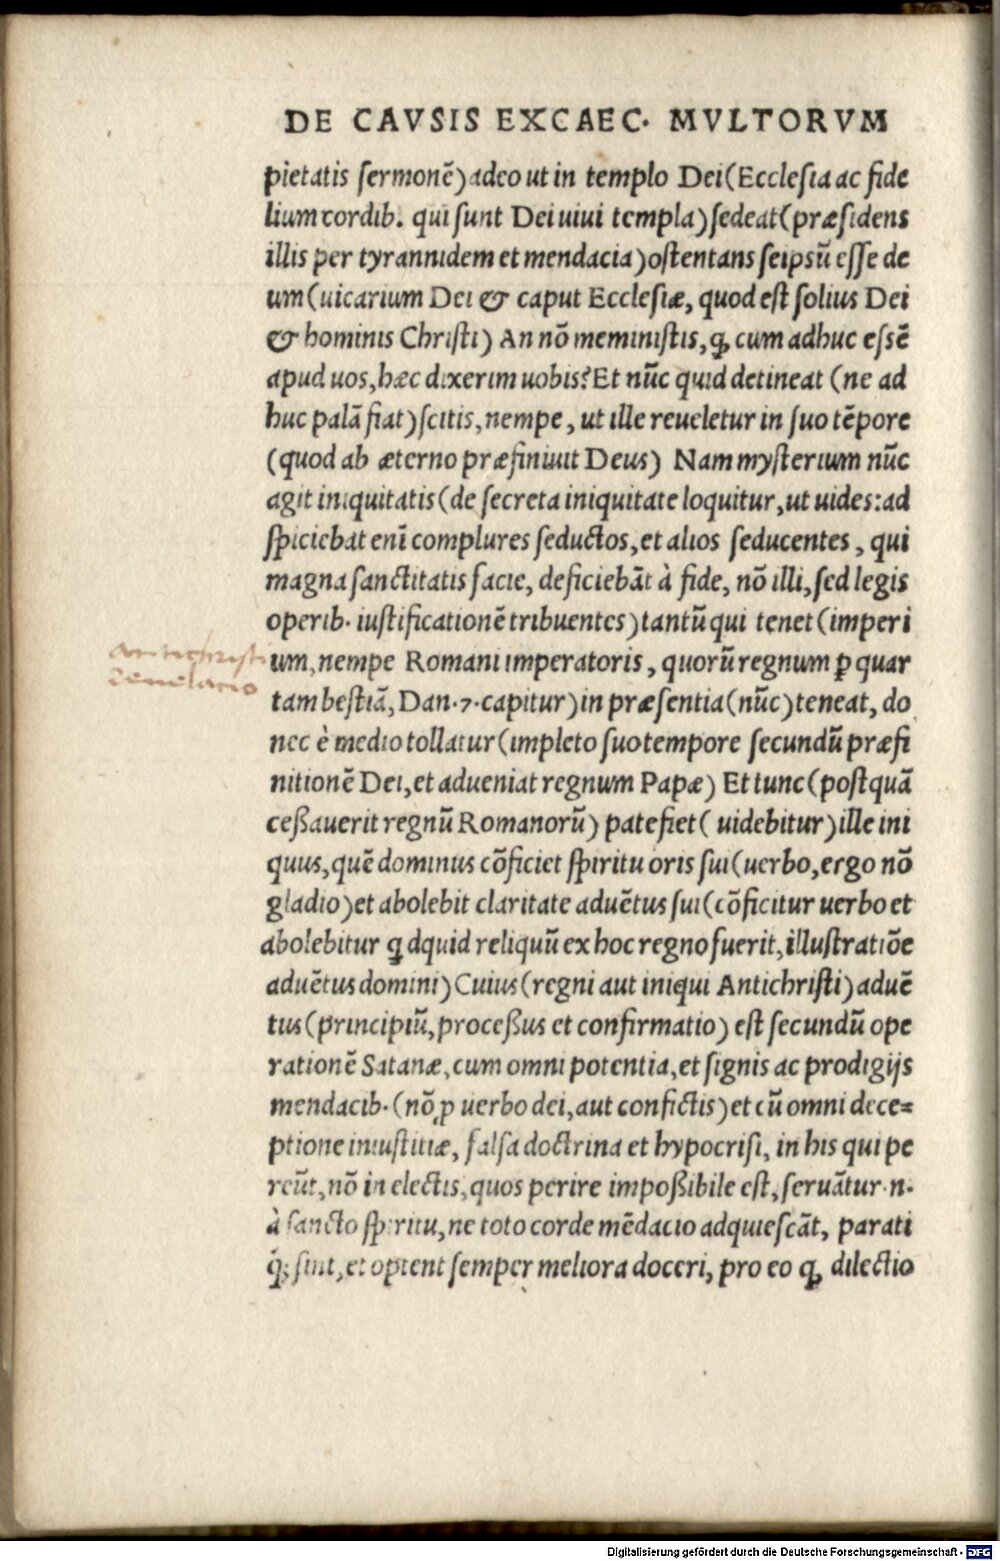 DE CAVSIS EXCAEC. MVLTORVM
pietatis sermonē) adeo ut in templo Dei (Ecclesia ac fide
lium cordib. qui sunt Dei uiui templa) sedeat (præsidens
illis per tyrannidem et mendacia) ostentans seipsū esse de
um (uicarium Dei & caput Ecclesiæ, quod est solius Dei
& hominis Christi) An nō meministis, ꝙ cum adhuc essē
apud uos, hæc dixerim uobis? Et nūc quid detineat (ne ad
huc palā fiat) scitis, nempe, ut ille reueletur in suo tēpore
(quod ab æterno præfiniuit Deus) Nam mysterium nūc
agit iniquitatis (de secreta iniquitate loquitur, ut uides: ad
spiciebat enī complures seductos, et alios seducentes, qui
magna sanctitatis facie, deficiebāt à fide, nō illi, sed legis
operib. iustificationē tribuentes) tantū qui tenet (imperi
um, nempe Romani imperatoris, quorū regnum ꝑ quar
tam bestiā, Dan. 7. capitur) in præsentia (nūc) teneat, do
nec è medio tollatur (impleto suo tempore secundū præfi
nitionē Dei, et adueniat regnum Papæ) Et tunc (postquā
ceßauerit regnū Romanorū) patefiet (uidebitur) ille ini
quus, quē dominus cōficiet spiritu oris sui (uerbo, ergo nō
gladio) et abolebit claritate aduētus sui (cōficitur uerbo et
abolebitur ꝗdquid reliquū ex hoc regno fuerit, illustratiōe
aduētus domini) Cuius (regni aut iniqui Antichristi) aduē
tus (principiū, proceßus et confirmatio) est secundū ope
rationē Satanæ, cum omni potentia, et signis ac prodigijs
mendacib. (nō ꝓ uerbo dei, aut confictis) et cū omni dece=
ptione iniustitiæ, falsa doctrina et hypocrisi, in his qui pe
reūt, nō in electis, quos perire impoßibile est, seruātur .n.
à sancto spiritu, ne toto corde mēdacio adquiescāt, parati
q; sint, et optent semper meliora doceri, pro eo ꝙ dilectio
Antichristi
reuelacio
Digitalisierung gefördert durch die Deutsche Forschungsgemeinschaft - DFG